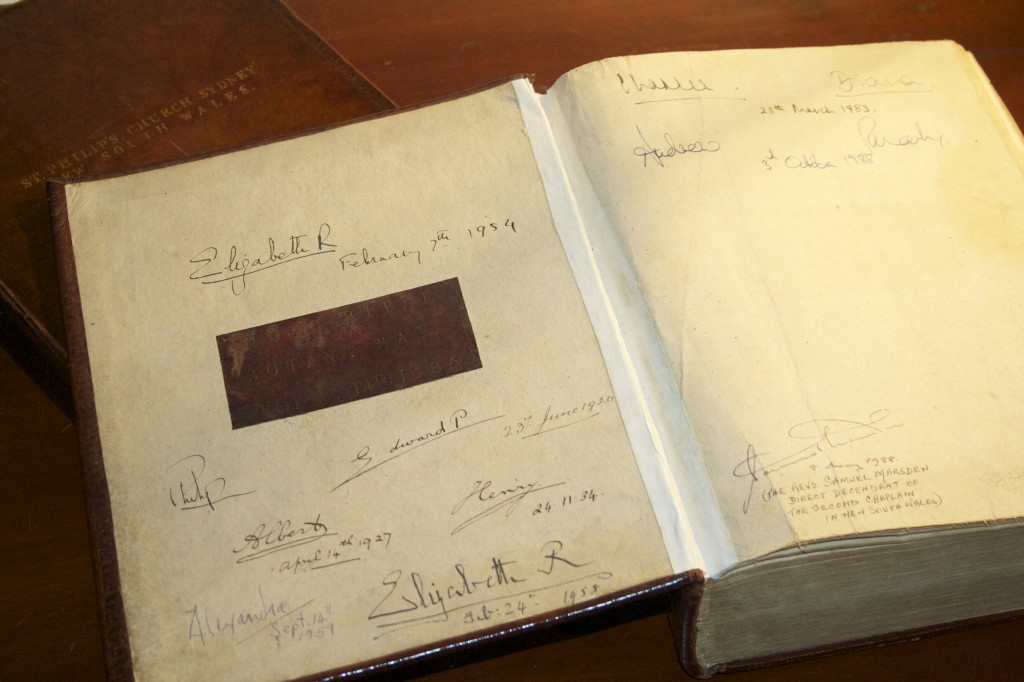 ST. PHILLIPS. CHURCH SYDNEY
NEW SOUTH WALES.
Elizabeth R
February 7th 1954
BOTANY BAY
Edward P
23rd June 1920
Philip
Henry
24.11.34.
Albert
April 14th 1927
Alexandra
Sept. 14th
1959
Elizabeth R
Feb: 24th 1958
Charles. Diana
28th March 1983.
Andrew Sarah.
3rd October 1988
8 May 1988
(THE REVD SAMUEL MARSDEN
DIRECT DECENDANT OF
THE SECOND CHAPLAIN
IN NEW SOUTH WALES)